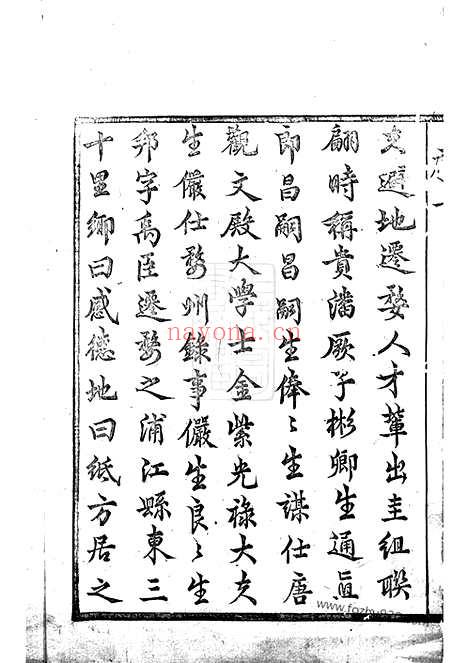 史避地遷婺人才輩出圭組聯
翩時稱貴潘厥子彬卿生通直
郎昌嗣昌嗣生俸〻生謀仕唐
觀文殿大學士金紫光祿大夫
生儼仕婺州錄事儼生良〻生
邦字禹臣遷婺之浦江縣東三
十里鄉曰感德地曰紙方居之
nayona.cn